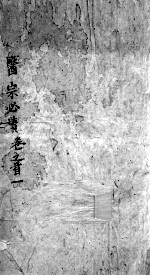 醫宗必讀卷之首一